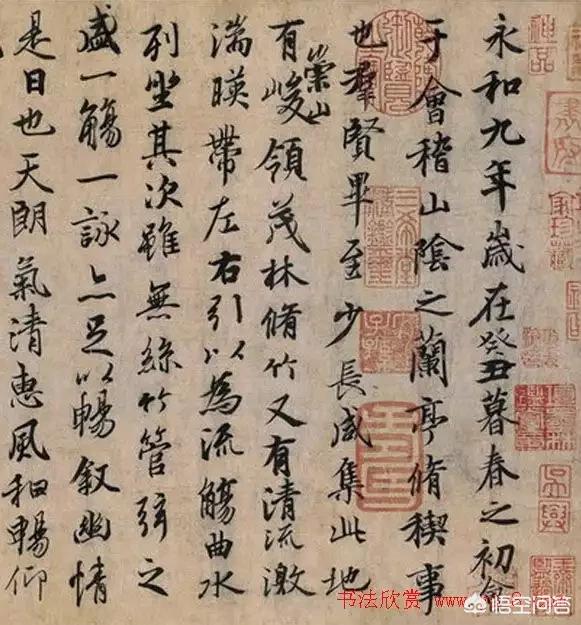 永和九年歲在癸丑暮春之初會
于會稽山陰之蘭亭脩稧事
也羣賢畢至少長咸集此地
有崇山峻領茂林脩竹又有清流激
湍暎帶左右引以為流觴曲水
列坐其次雖無絲竹管弦之
盛一觴一詠亦足以暢敘幽情
是日也天朗氣清惠風和暢仰
书法欣赏
悟空问答